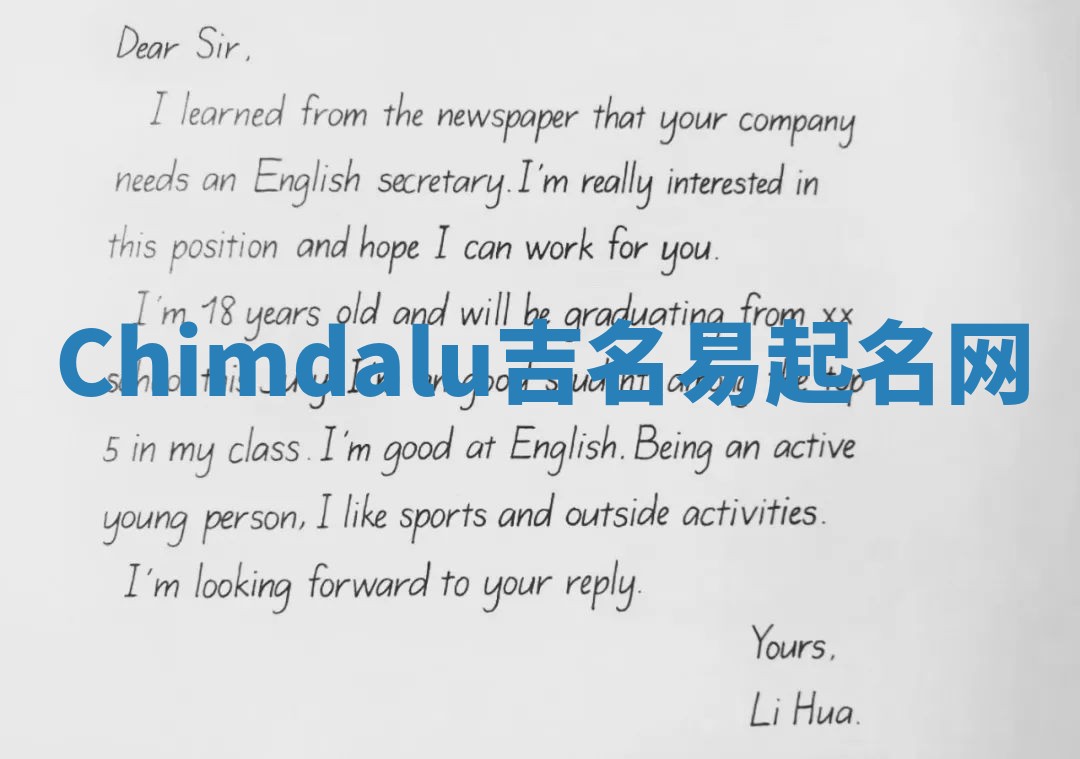 Dear Sir,
I learned from the newspaper that your company
needs an English secretary. I'm really interested in
this position and hope I can work for you.
I'm 18 years old and will be graduating from xx
Chimdalu吉名易起名网
school this July. I'm good student among the top
5 in my class. I'm good at English. Being an active
young person, I like sports and outside activities.
I'm looking forward to your reply.
Yours,
Li Hua.